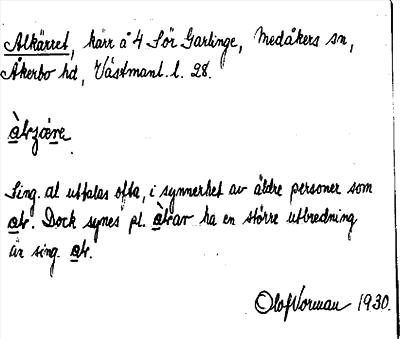 Alkärret, kärr å 4 Sör Garlinge, Medåkers sn,
Åkerbo hd, Västmanl. l. 28.
Sing. al uttalas ofta, i synnerhet av äldre personer som
Dock synes pl. ha en större utbredning
än sing.
Olof Vorman 1930.